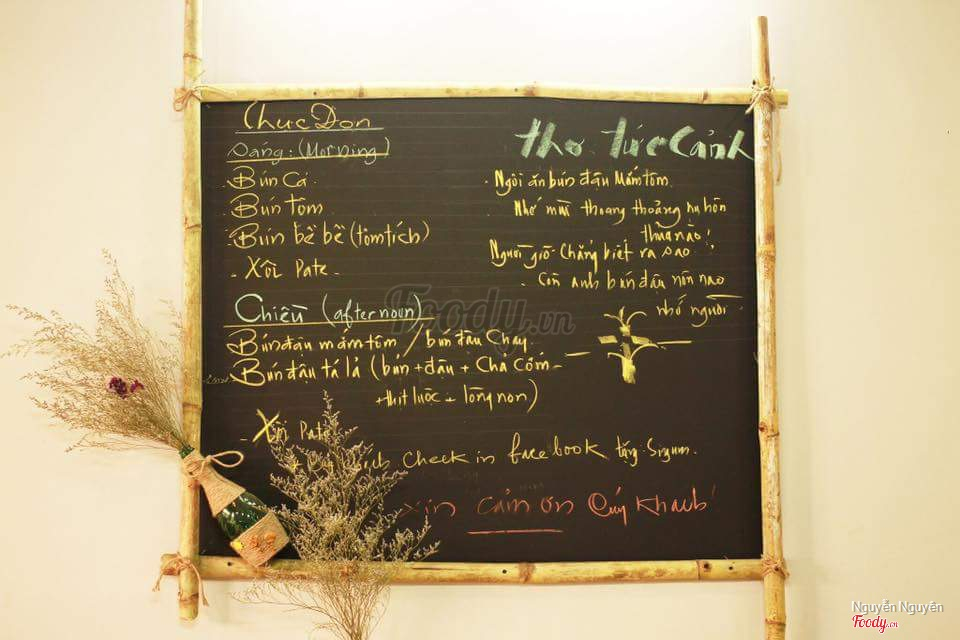 Thực Đơn
Sáng: (Morning)
- Bún Cá
- Bún Tôm
- Bún bề bề (tôm tích)
- Xôi Pate -
Chiều (afternoun)
- Bún đậu mắm tôm / bún đậu Chay
- Bún đậu tá lả (bún + đậu + Chả Cốm -
+ thịt luộc + lòng non)
- Xôi Pate
Check in facebook tặng
Xin cảm ơn Qúy Khách
Thơ tức Cảnh
- Ngồi ăn bún đậu Mắm tôm
Nhớ mùi thoang thoảng hồn
thủa nào!
Người giờ Chẳng biết ra sao
- Còn anh bún đậu nôn nao
nhớ người
Foody.vn
Nguyễn Nguyên
Foody.vn